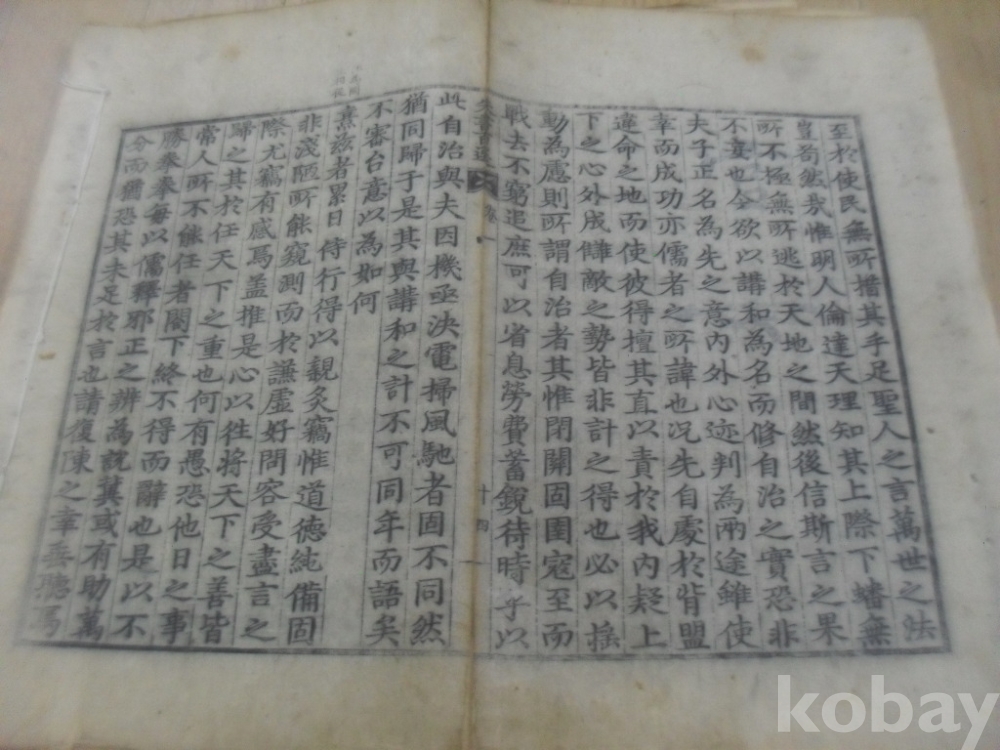 至於使民無所措其手足聖人之言萬世之法
豈苟然哉惟明人倫達天理知其上際下蟠無
所不極無所逃於天地之間然後信斯言之果
不妄也今欲以講和為名而修自治之實恐非
夫子正名為先之意內外心迹判為兩途雖使
幸而成功亦儒者之所諱也況先自處於背盟
違命之地而使彼得擅其直以責於我內疑上
下之心外成讎敵之勢皆非計之得也必以搖
動為慮則所謂自治者其惟閉關固圉寇至而
戰去不窮追庶可以省息勞費蓄銳待時乎以
十四
此自治與夫因機亟決電掃風馳者固不同然
猶同歸于是其與講和之計不可同年而語矣
不審台意以為如何
熹茲者累日侍行得以親炙竊惟道德純備固
非淺陋所能窺測而於謙虛好問容受盡言之
際尤竊有感焉盖推是心以往將天下之善皆
歸之其於任天下之重也何有愚恐他日之事
常人所不能任者閤下終不得而辭也是以不
勝拳拳每以儒釋邪正之辨為說冀或有助萬
分而猶恐其未足於言也請復陳之幸垂聽焉
kobay